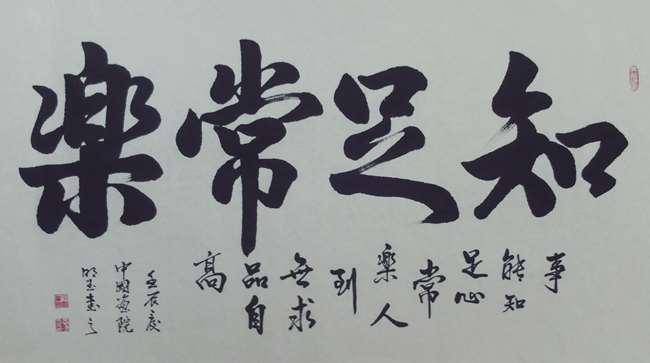 知足常楽
事
能知
足心
常
樂人
到
無求
品自
高
壬辰夏
中國畫院
玉書之